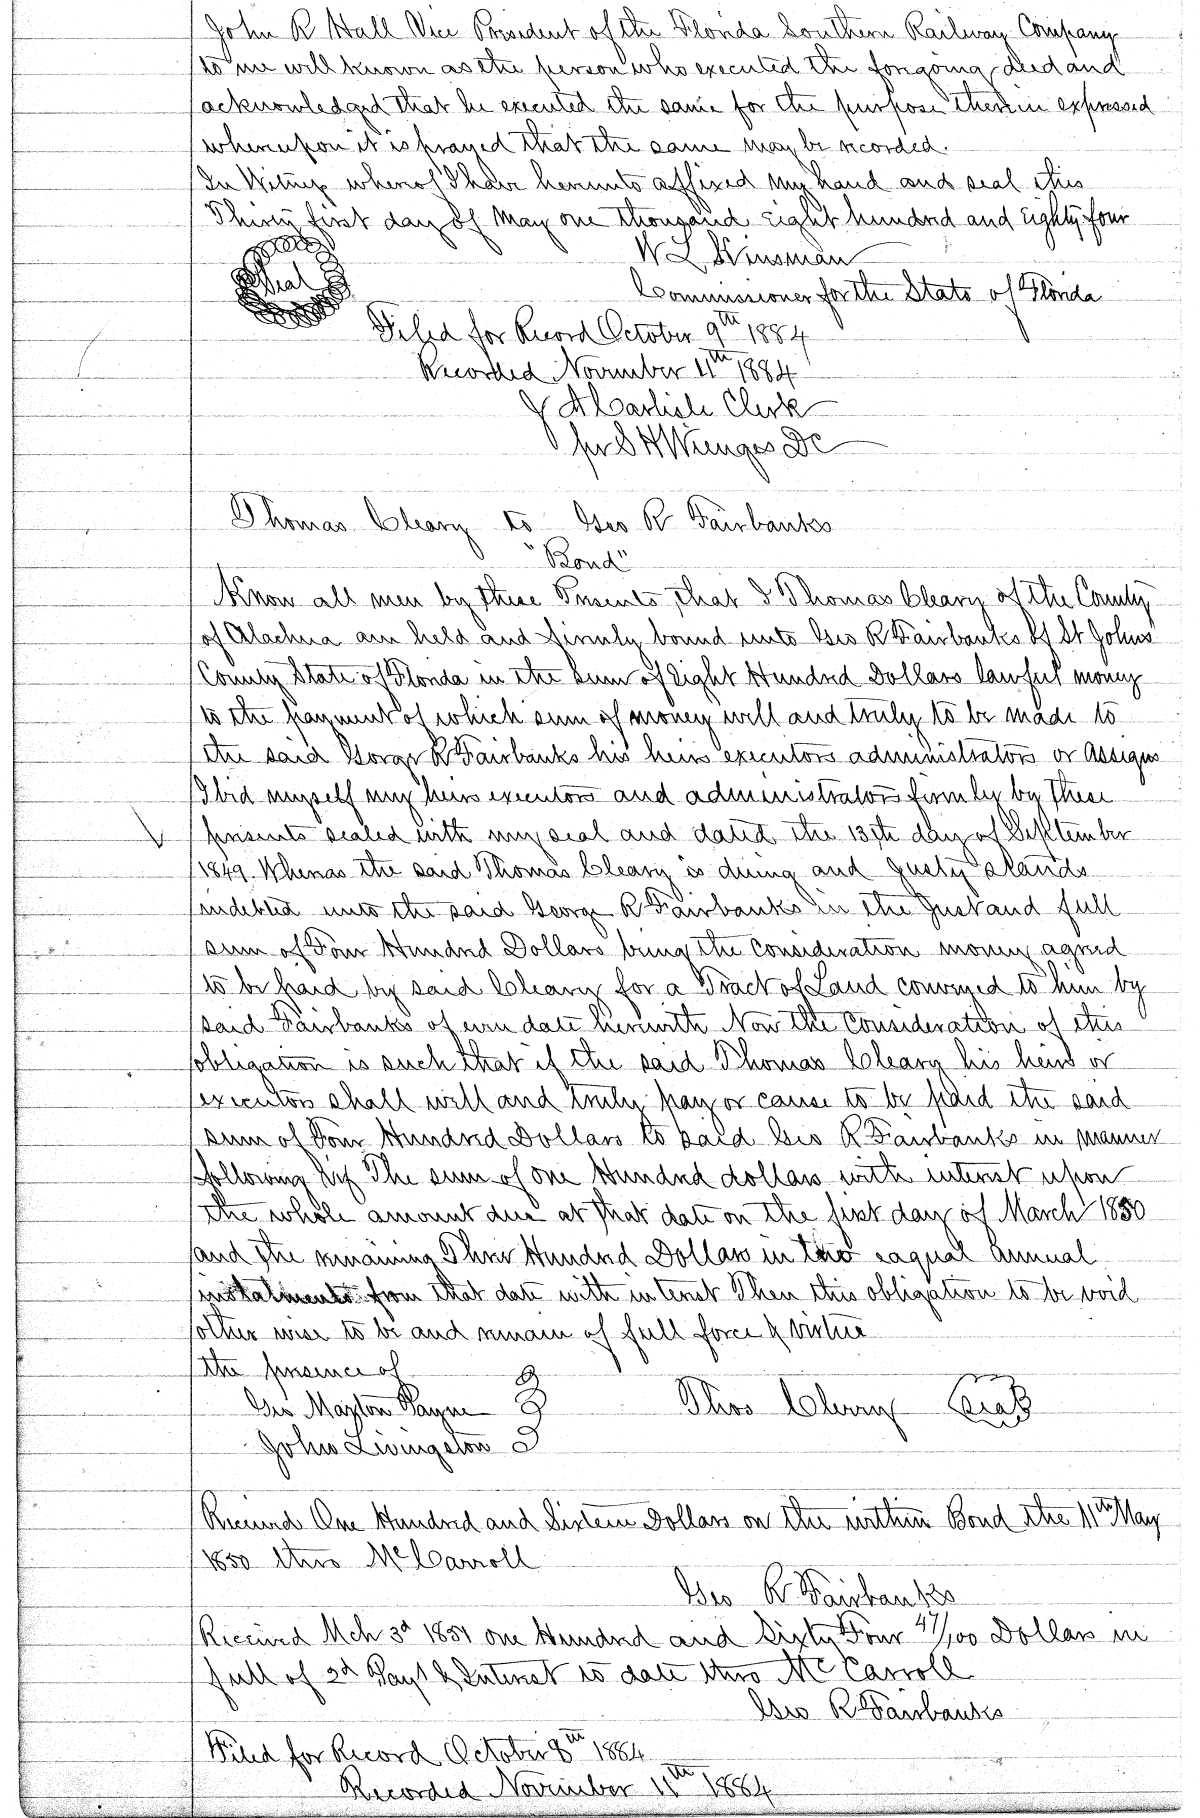 John R Hall Vice President of the Florida Southern Railway Company
to me well known as the person who executed the foregoing deed and
acknowledged that he executed the same for the purpose therein expressed
whereupon it is prayed that the same may be recorded.
In Witness whereof I have hereunto affixed my hand and seal this
Thirty first day of May one thousand eight hundred and Eighty four
W L
Seal
Commissioner for the State of Florida
Filed for Record October 9th 1884
Recorded November 11th 1884
J A Carlisle Clerk
per S H Wienges DC
Thomas Cleary to Geo R Fairbanks
"Bond"
Know all men by these Presents, that I Thomas Cleary of the County
of Alachua am held and firmly bound unto Geo R Fairbanks of St Johns
County State of Florida in the Sum of Eight Hundred Dollars lawful money
to the payment of which sum of money will and truly to be made to
the said George R Fairbanks his heirs executors administrators or Assigns
I bid myself my heirs executors and administrators firmly by these
presents sealed with my seal and dated the 13th day of September
1849. Whereas the said Thomas Cleary is diung and justy stands
indebted unto the said George R Fairbanks in the Just and full
sum of Four Hundred Dollars being the Consideration money agreed
to be paid by said Cleary for a Tract of Land conveyed to him by
said Fairbanks of even date herewith Now the Consideration of this
obligation is such that if the said Thomas Cleary his heirs or
executors shall will and truly pay or cause to be paid the said
sum of Four Hundred Dollars to said Geo R Fairbanks in manner
following viz The sum of one Hundred dollars with interest upon
the whole amount due at that date on the first day of March 1850
and the remaining Three Hundred Dollars in two eaqual Annual
instalments from that date with interest Then this obligation to be void
other wise to be and remain of full force & virtue
the presence of
Geo Payne
Thos Cleary Seal
John Livingston
Received One Hundred and Sixteen Dollars on the within Bond the 11th May
1850 thro McCarroll
Geo R Fairbanks
Received Mch 3d 1851 one Hundred and Sixty Four 47/100 Dollars in
full of 2d Payt & Interest to date thro McCarroll
Geo R Fairbanks
Filed for Record October 8th 1884
Recorded November 11th 1884